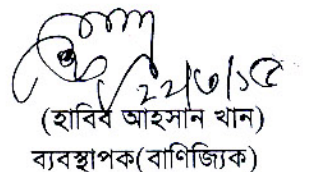 ২২/৬/১৫
(হাবিব আহসান খান)
ব্যবস্থাপক(বাণিজ্যিক)